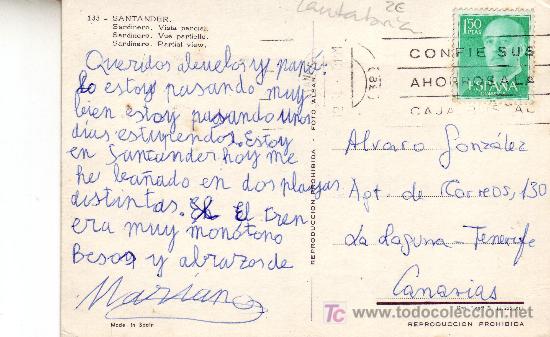 133 - SANTANDER.
Sardinero. Vista parcial.
Sardinero. Vue partielle.
Sardinero. Partial view.
Cantabria
2E
1'50
PTAS
ESPAÑA
CORREOS
CONFIE SUS
AHORROS A LA
CAJA
Queridos abuelos y papá
Lo estoy pasando muy
bien estoy pasando unos
días estupendos. Estoy
en Santander hoy me
he bañado en dos playas
distintas. El tren
era muy monótono
Besos y abrazos de
Marian
Made in Spain
REPRODUCCION PROHIBIDA - FOTO
Alvaro González
Apt. de Correos, 130
La Laguna - Tenerife
Canarias
REPRODUCCION PROHIBIDA
TC
todocoleccion.net